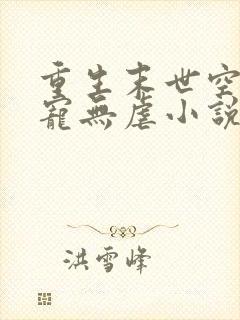 重生末世空
寵無虐小說
洪雪峰